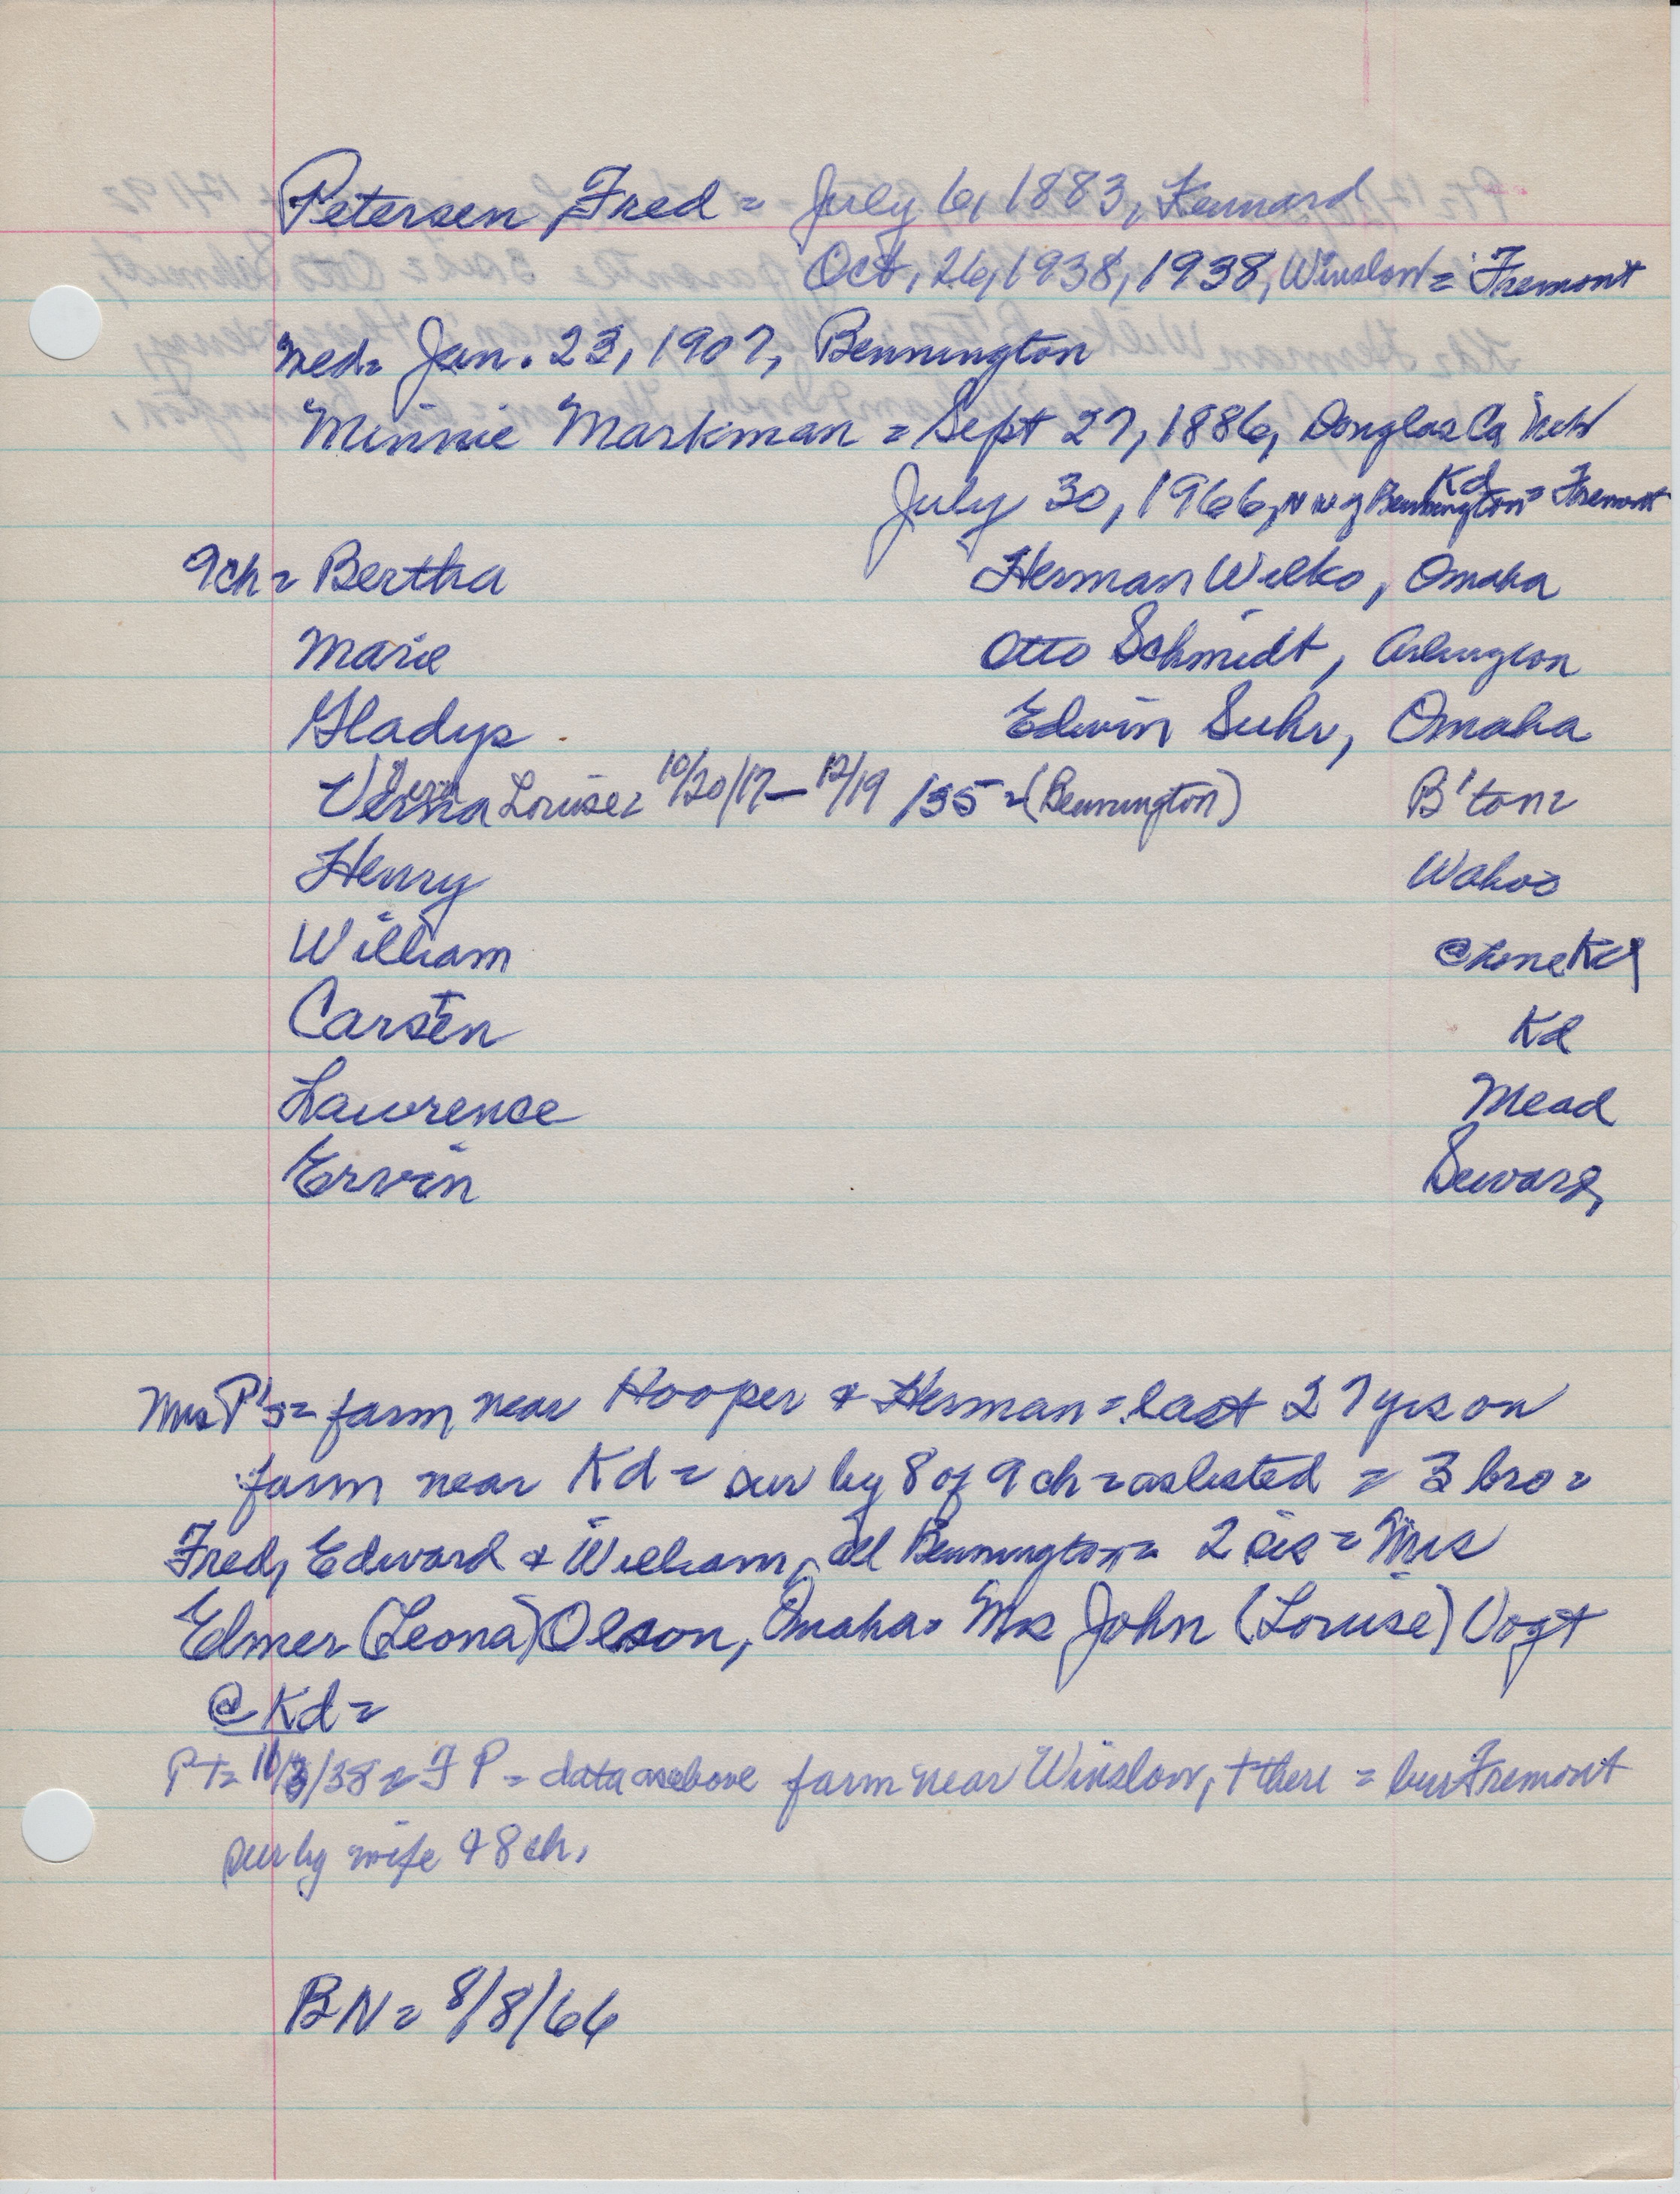 Petersen Fred = July 6, 1883, Kennard
Oct, 26, 1938, 1938, Winslow = Fremont
wed = Jan. 23, 1907, Bennington
Minnie Markman = Sept 27, 1886, Douglas Co Neb
July 30, 1966, NW of Bennington Kd = Fremont
9ch = Bertha Herman Wilko, Omaha
Marie Otto Schmidt, Arlington
Gladys Edwin Suhr, Omaha
Verna Louise = 10/20/17 — 12/19/35 = (Bennington) B'ton =
Henry Wahoo
William @ home Kd
Carsten Kd
Lawrence Mead
Ervin Seward,
Mrs P's = farm near Hooper & Herman = last 27 yrs on
farm near Kd = sur by 8 of 9 ch = as listed = 3 bro =
Fred, Edward & William, all Bennington = 2 sis = Mrs
Elmer (Leona) Olson, Omaha = Mrs John (Louise) Vogt
@ Kd =
PT = 11/3/38 = F P = data as above farm near Winslow, + there = bur Fremont
sur by wife & 8 ch.
BN = 8/8/66